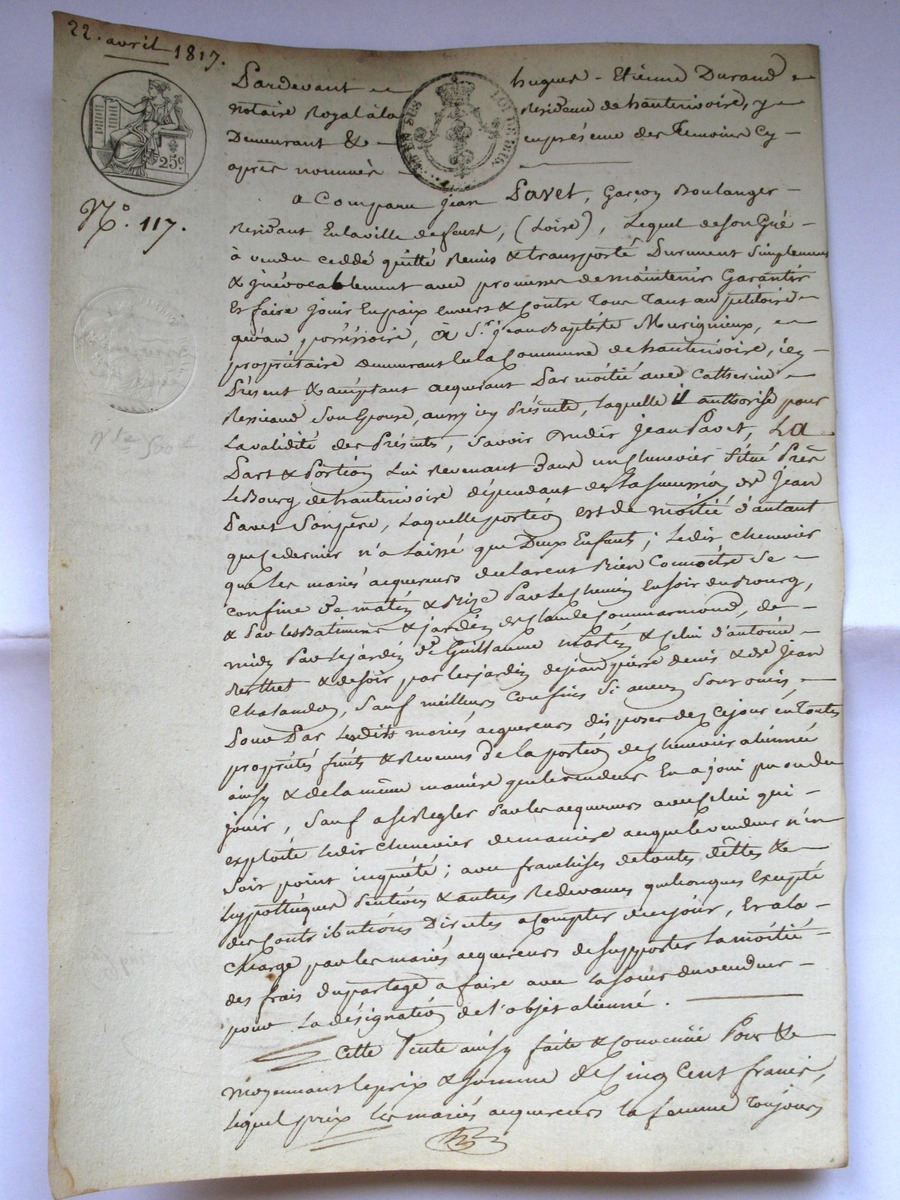 22. avril 1817.
Pardevant Hugues-Etienne Durand
notaire Royal à la Résidence de hauterivoire, y
Demeurant & en présence des Temoins cy-
après nommés
25c
N°. 117.
A Comparu Jean Pavet, Garçon Boulanger
Residant En la ville de feurs, (Loire), Lequel de Son Gré
à vendu ceddé quitté Remis & transporté Purement Simplement
& jrrévocablement avec promesses de maintenir Garantir
Et faire jouir En paix envers & Contre Tous Tant au pétitoire
qu'au posséssoire, à Sr. jean Baptiste Murigneux,
propriétaire demeurant En la Commune de hauterivoire, icy
Présent & acceptant acquerant Par moitié avec Catherine
Son Epouse, aussy icy Présente, laquelle il authorise pour
La validité des Présents, Savoir Jean Pavet, La
Part & Portion Lui Revenant Dans un chenevier Situé Près
Le Bourg de hauterivoire dépendant de La Succession de Jean
Pavet Son père, Laquelle portion est de moitié d'autant
que ce dernier n'a Laissé que Deux Enfants; Ledit chenevier
que Les mariés acquereurs declarent Bien Connoître Se
confine de matin & Bize Par Le chemin du Bourg,
& Par Les Batiments & jardin de Claude Commarmond, de
midy Par le jardin de Guillaume & Celui d'antoine
Berthet & de Soir par Les jardin de jean pierre denis & de Jean
Sauf meilleurs Confins Si aucun Sont omis
Pour Par Lesdits mariés acquereurs disposer de Ce jour en toutes
propriétés fruits & Revenus de la portion de chenevier aliennée
ainsy & de la même manière que le vendeur En a joui pu ou du
jouir, Sauf a Se Regler Par Les acquereurs avec Celui qui
exploite Ledit chenevier de manière a ce que Le vendeur n'en
Soit point inquiété; avec franchises de toutes dettes &
hypothèques & autres Redevances quelconques Excepté
des Contributions Directes a Compter de ce jour, Et a la
charge par Les mariés acquereurs de Supporter La moitié
des frais du partage a faire avec La Soeur du vendeur
pour La désignation de l'objet alienné.
Cette Vente ainsy faite & Convenüe Pour &
moyennant Le prix & Somme de Cinq Cent francs,
Lequel prix Les mariés acquereurs la femme Toujours